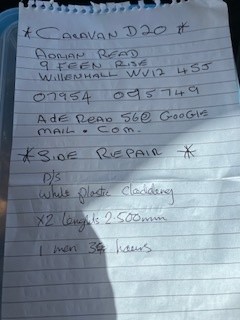 * CARAVAN D20 *
ADRIAN READ
9 FEEN RISE
WILLENHALL WV12 4SJ
07954 095749
ADE READ 56@ GOOGLE
MAIL . COM.
* SIDE REPAIR *
P/S
white plastic cladding
X2 lenghts 2.500mm
1 men hours